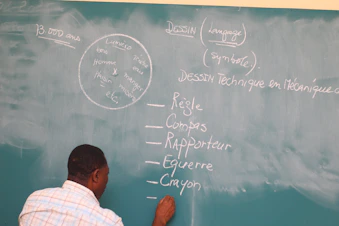 13 000 ans
DESSIN (Langage)
(symbole)
DESSIN Technique en Mécanique
Règle
Compas
RAPporteur
Equerre
Crayon